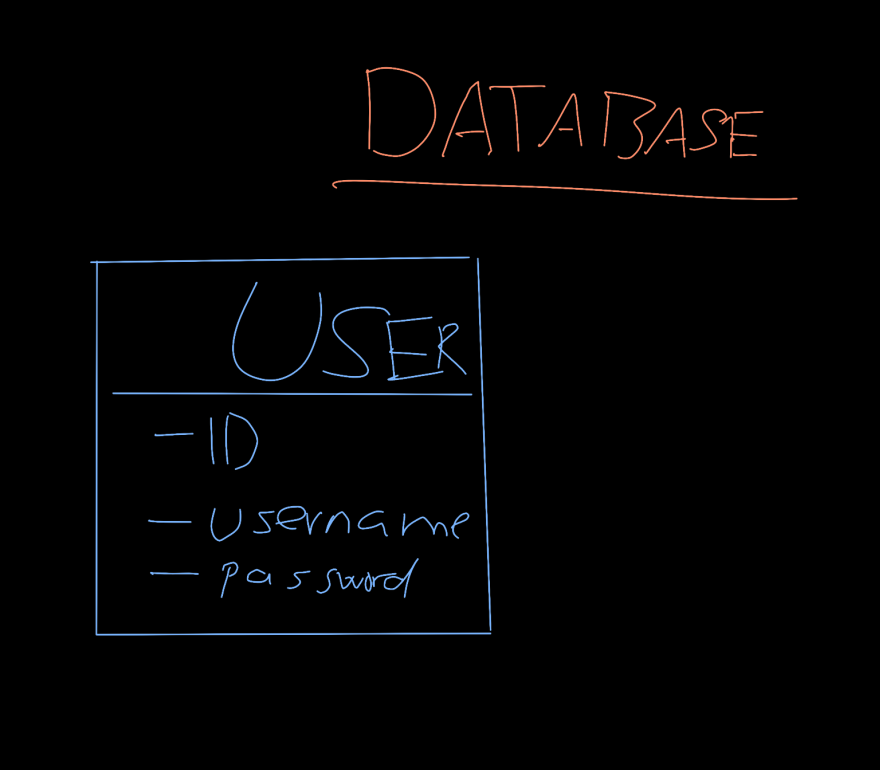 DATABASE
USER
- ID
- Username
- password